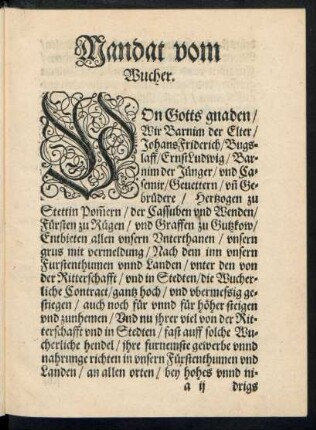 Mandat vom
Wucher.
VOn Gotts gnaden/
Wir Barnim der Elter/
Johans Friderich/ Bugs-
laff/ Ernst Ludwig/ Bar-
nim der Jünger/ vnd Ca-
semir/ Geuettern/ vñ Ge-
brüdere/ Hertzogen zu
Stettin Pom̃ern/ der Cassuben vnd Wenden/
Fürsten zu Rügen/ vnd Graffen zu Gutzkow/
Entbieten allen vnsern Vnterthanen/ vnsern
grus mit vermeldung/ Nach dem inn vnsern
Furstenthumen vnnd Landen/ vnter den von
der Ritterschafft/ vnd in Stedten/ die Wucher-
liche Contract/ gantz hoch/ vnd vbermessig ge-
stiegen/ auch noch für vnnd für höher steigen
vnd zunhemen/ Vnd nu jhrer viel von der Rit-
terschafft vnd in Stedten/ fast auff solche Wu-
cherliche hendel/ jhre furnemste gewerbe vnnd
nahrunge richten in vnsern Fürstenthumen vnd
Landen/ an allen orten/ bey hohes vnnd ni-
a ij drigs